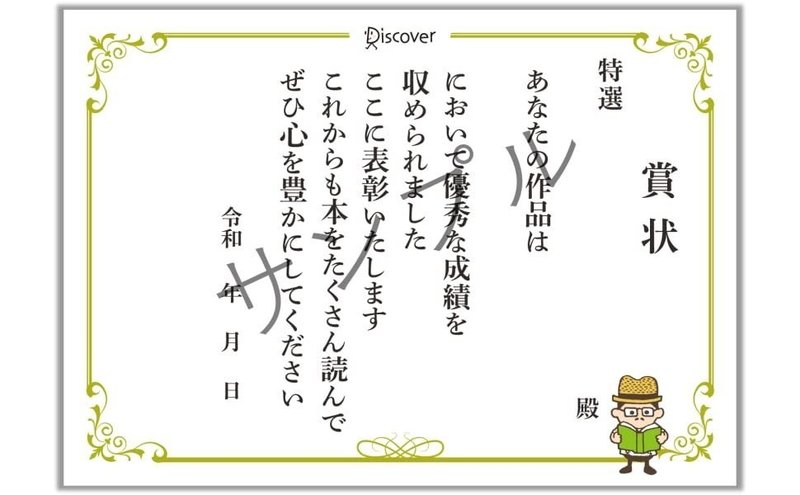 Discover
賞状
特選
殿
あなたの作品は
において優秀な成績を
収められました
ここに表彰いたします
これからも本をたくさん読んで
ぜひ心を豊かにしてください
令和 年 月 日
サンプル